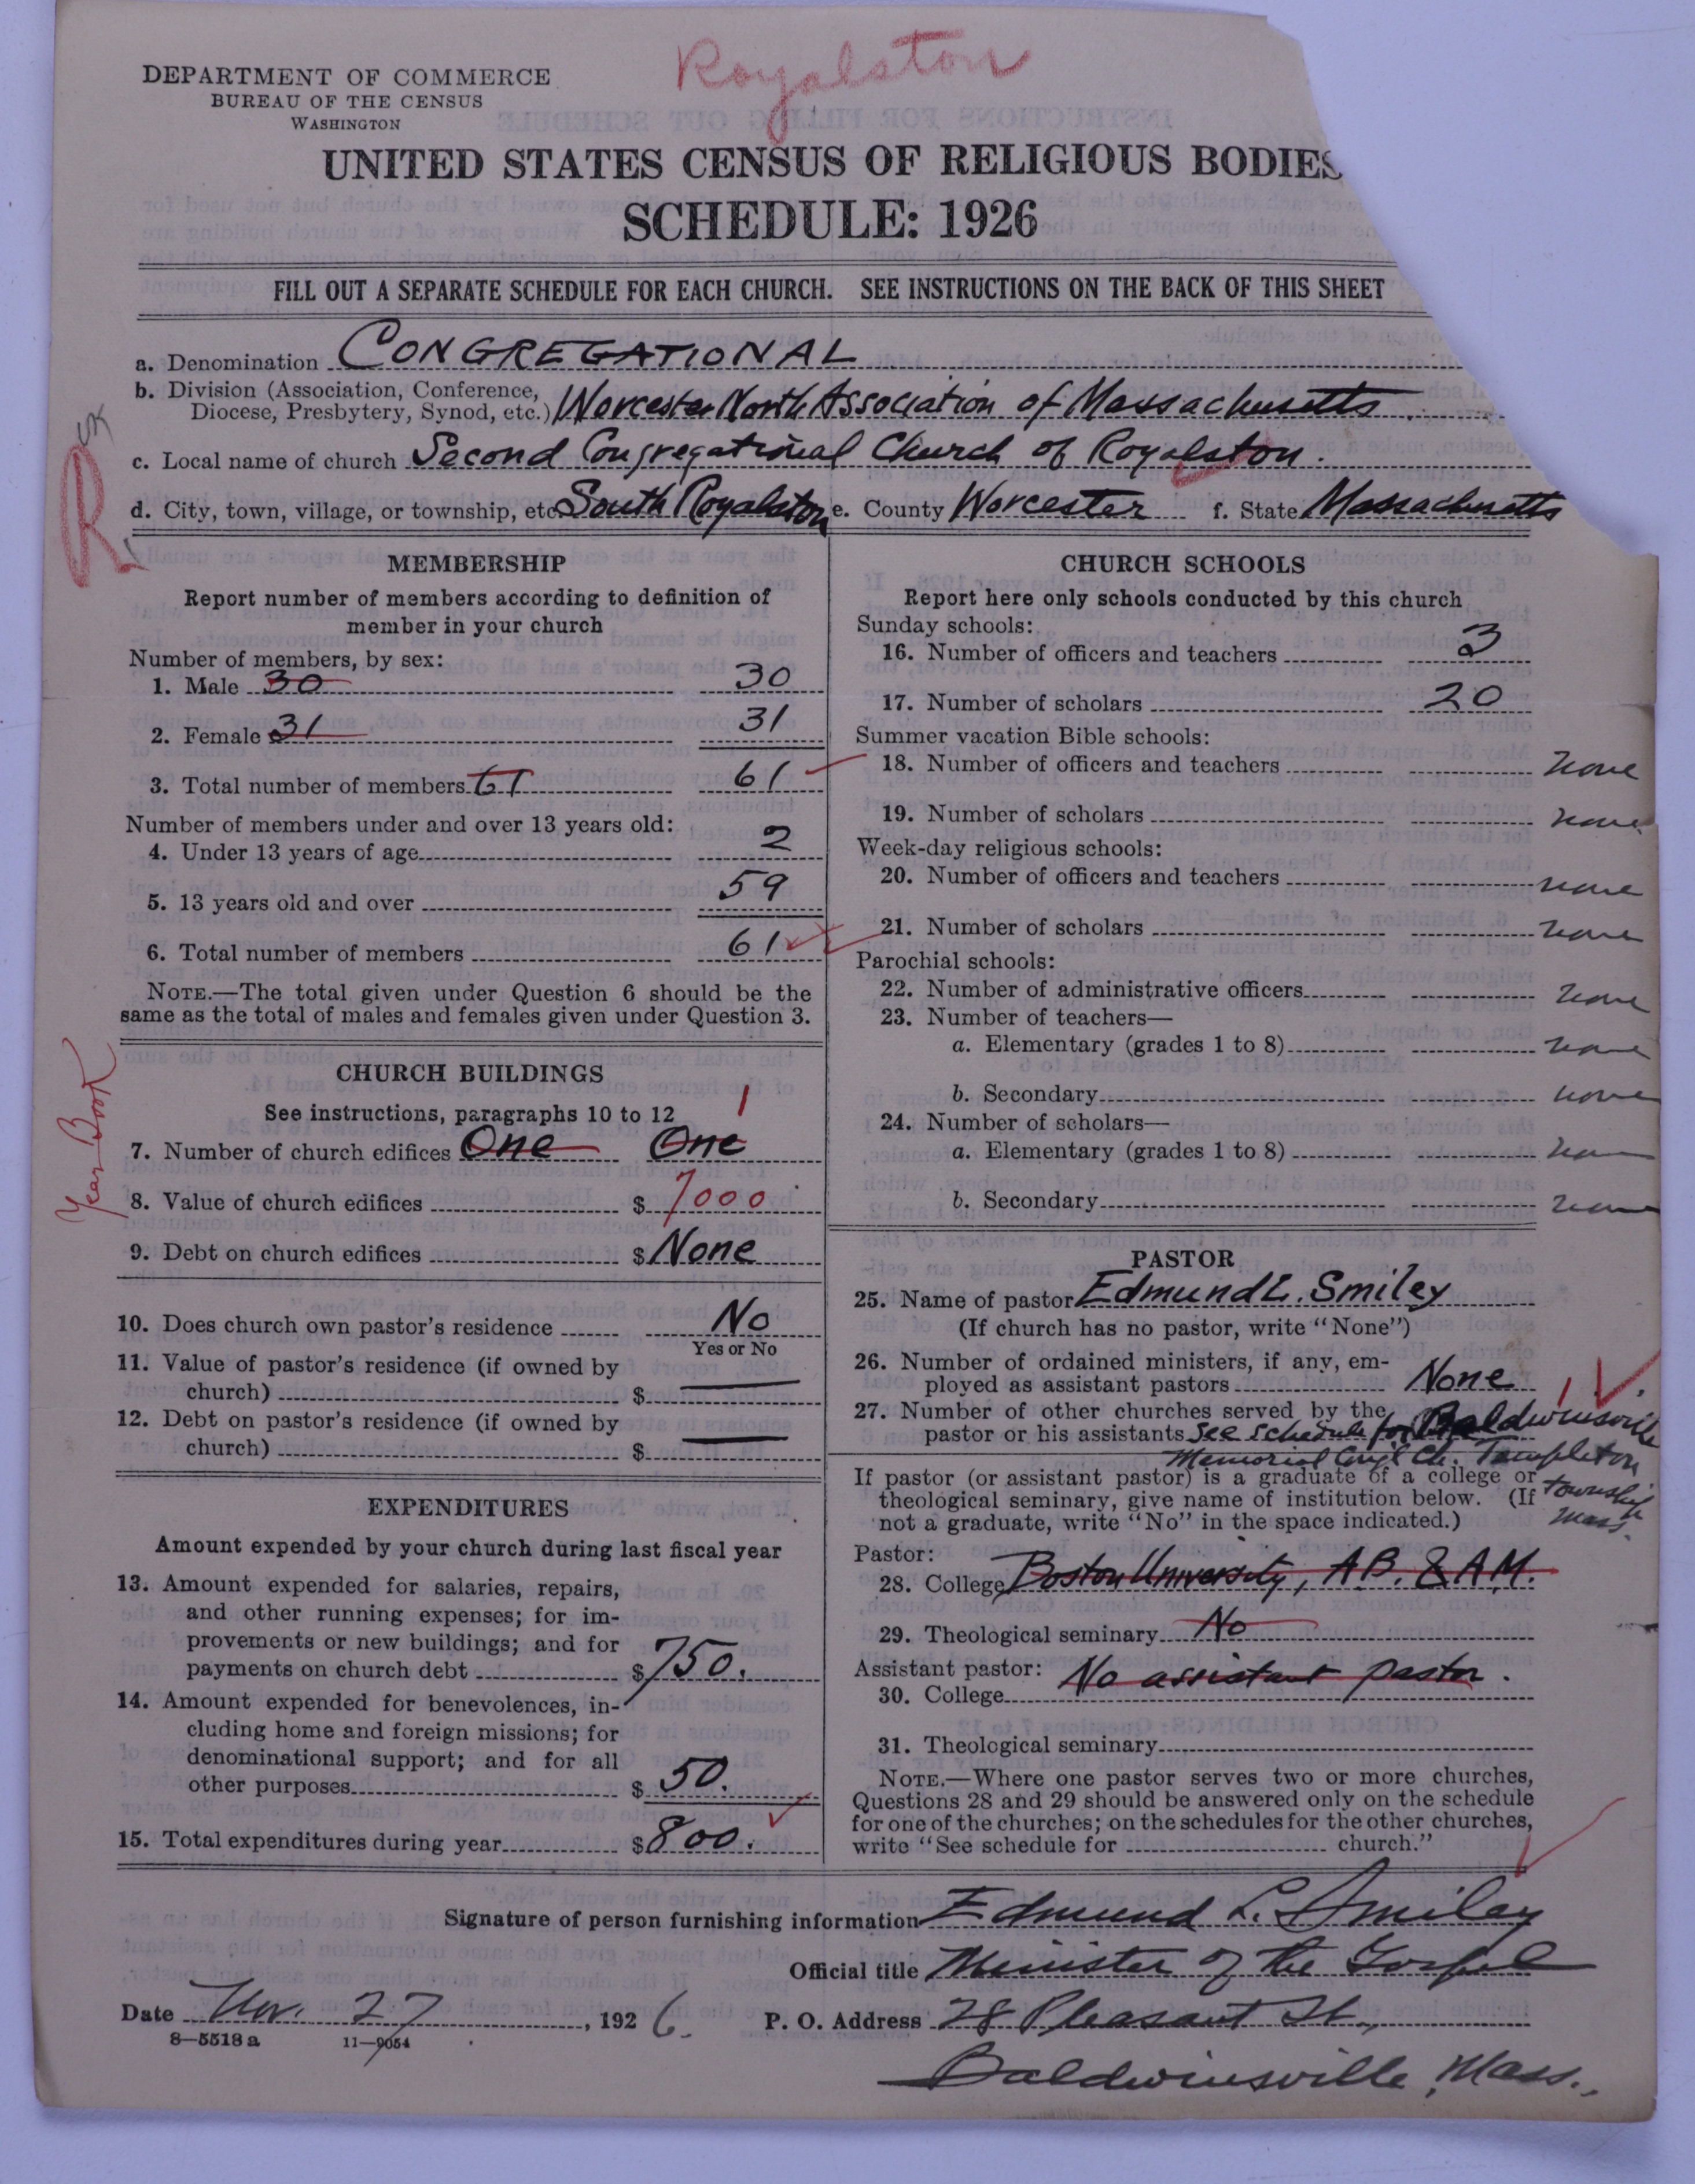 Royalston
DEPARTMENT OF COMMERCE
BUREAU OF THE CENSUS
WASHINGTON
UNITED STATES CENSUS OF RELIGIOUS BODIES
SCHEDULE: 1926
FILL OUT A SEPARATE SCHEDULE FOR EACH CHURCH. SEE INSTRUCTIONS ON THE BACK OF THIS SHEET
a. Denomination CONGREGATIONAL
b. Division (Association, Conference,
Diocese, Presbytery, Synod, etc.) Worcester North Association of Massachusetts
c. Local name of church Second Congregational Church of Royalston.
d. City, town, village, or township, etc. South Royalston e. County Worcester f. State Massachusetts
R
MEMBERSHIP
Report number of members according to definition of
member in your church
Number of members, by sex:
1. Male 30 30
2. Female 31 31
3. Total number of members 61 61
Number of members under and over 13 years old:
4. Under 13 years of age 2
5. 13 years old and over 59
6. Total number of members 61
NOTE.—The total given under Question 6 should be the
same as the total of males and females given under Question 3.
Year Book
CHURCH BUILDINGS
See instructions, paragraphs 10 to 12 1
7. Number of church edifices One One
8. Value of church edifices $ 7000
9. Debt on church edifices $ None
10. Does church own pastor's residence No
Yes or No
11. Value of pastor's residence (if owned by
church) $
12. Debt on pastor's residence (if owned by
church) $
EXPENDITURES
Amount expended by your church during last fiscal year
13. Amount expended for salaries, repairs,
and other running expenses; for im-
provements or new buildings; and for
payments on church debt $ 750.
14. Amount expended for benevolences, in-
cluding home and foreign missions; for
denominational support; and for all
other purposes $ 50.
15. Total expenditures during year $ 800.
CHURCH SCHOOLS
Report here only schools conducted by this church
Sunday schools:
16. Number of officers and teachers 3
17. Number of scholars 20
Summer vacation Bible schools:
18. Number of officers and teachers none
19. Number of scholars none
Week-day religious schools:
20. Number of officers and teachers none
21. Number of scholars none
Parochial schools:
22. Number of administrative officers none
23. Number of teachers—
a. Elementary (grades 1 to 8) none
b. Secondary none
24. Number of scholars—
a. Elementary (grades 1 to 8) none
b. Secondary none
PASTOR
25. Name of pastor Edmund L. Smiley
(If church has no pastor, write "None")
26. Number of ordained ministers, if any, em-
ployed as assistant pastors None 1
27. Number of other churches served by the
pastor or his assistants See schedule for Baldwinsville
Memorial Cong'l Ch. Templeton
township
Mass.
If pastor (or assistant pastor) is a graduate of a college or
theological seminary, give name of institution below. (If
not a graduate, write "No" in the space indicated.)
Pastor:
28. College Boston University, A.B. & A.M.
29. Theological seminary No
Assistant pastor: No assistant pastor.
30. College
31. Theological seminary
NOTE.—Where one pastor serves two or more churches,
Questions 28 and 29 should be answered only on the schedule
for one of the churches; on the schedules for the other churches,
write "See schedule for church."
Signature of person furnishing information Edmund L. Smiley
Official title Minister of the Gospel
Date Nov. 27, 1926. P. O. Address 28 Pleasant St.,
8—5518 a 11—9054
Baldwinsville, Mass.